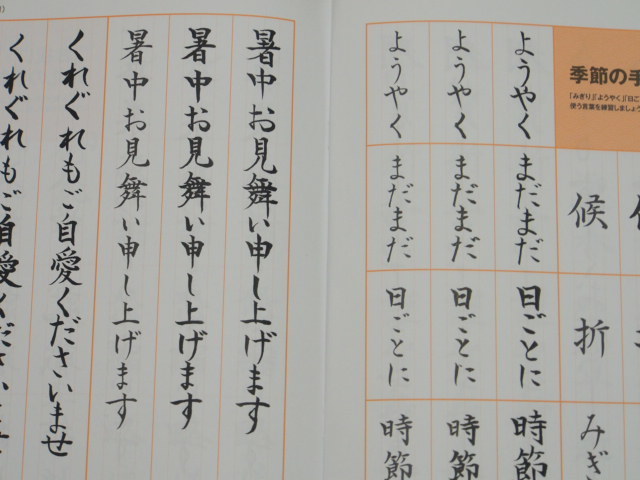 季節の手
「みぎり」「ようやく」「日ご
使う言葉を練習しましょう
候
折
みぎ
ようやく
まだまだ
日ごとに
時節
ようやく
まだまだ
日ごとに
時節
ようやく
まだまだ
日ごとに
時節
暑中お見舞い申し上げます
暑中お見舞い申し上げます
暑中お見舞い申し上げます
くれぐれもご自愛くださいませ
くれぐれもご自愛ください